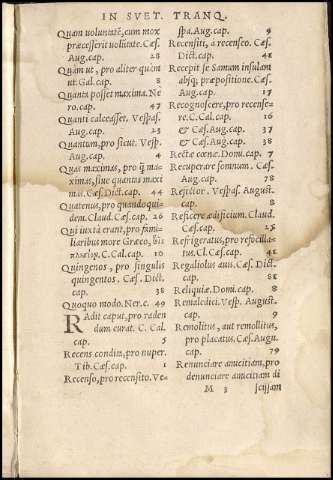 IN SVET. TRANQ.
Quam uoluntatē, cum mox
præcesserit uoluntate. Cæs.
Aug. cap. 28
Quàm ut, pro aliter quàm
ut. Gal. cap. 8
Quanta posset maxima. Ne
ro. cap. 47
Quanti calceasset. Vespas.
Aug. cap. 23
Quantum, pro sicut. Vesp.
Aug. cap. 4
Quas maximas, pro q̃ ma-
ximas, siue quantas maxi
mas. Cæs. Dict. cap. 44
Quatenus, pro quandoqui-
dem. Claud. Cæs. cap. 26
Qui iuxtà erant, pro fami-
liaribus more Græco, bis
C. Cal. cap. 10
Quingenos, pro singulis
quingentos Cæs. Dict.
cap. 38
Quoquo modo. Ner. c. 49
RAdit caput, pro raden
dum curat. C. Cal.
cap. 5
Recens condita, pro nuper.
Tib. Cæs. cap. 1
Recenso, pro recensito. Ve-
spa. Aug. cap. 9
Recensiti, à recenseo. Cæs.
Dict. cap. 41
Recepit se Samum insulam
absq; præpositione. Cæs.
Aug. cap. 17
Recognoscere, pro recense-
re. C. Cal. cap. 16
& Cæs. Aug. cap. 37
& Cæs. Aug. cap. 38
Rectæ cœnæ. Domi. cap. 7
Recuperare somnum. Cæs.
Aug. cap. 78
Refictor. Vespas. August.
cap. 8
Reficere ædificium. Claud.
Cæs. cap. 25
Refrigeratus, pro refocilla-
tus. Cl. Cæs. cap. 41
Regaliolus auis. Cæs. Dict.
cap. 81
Reliquiæ. Domi. cap. 8
Remaledici. Vesp. August.
cap. 9
Remolitus, aut remollitus,
pro placatus. Cæs. Augu.
cap. 79
Renunciare amicitiam, pro
denunciare amicitiam di
M 3 scissam